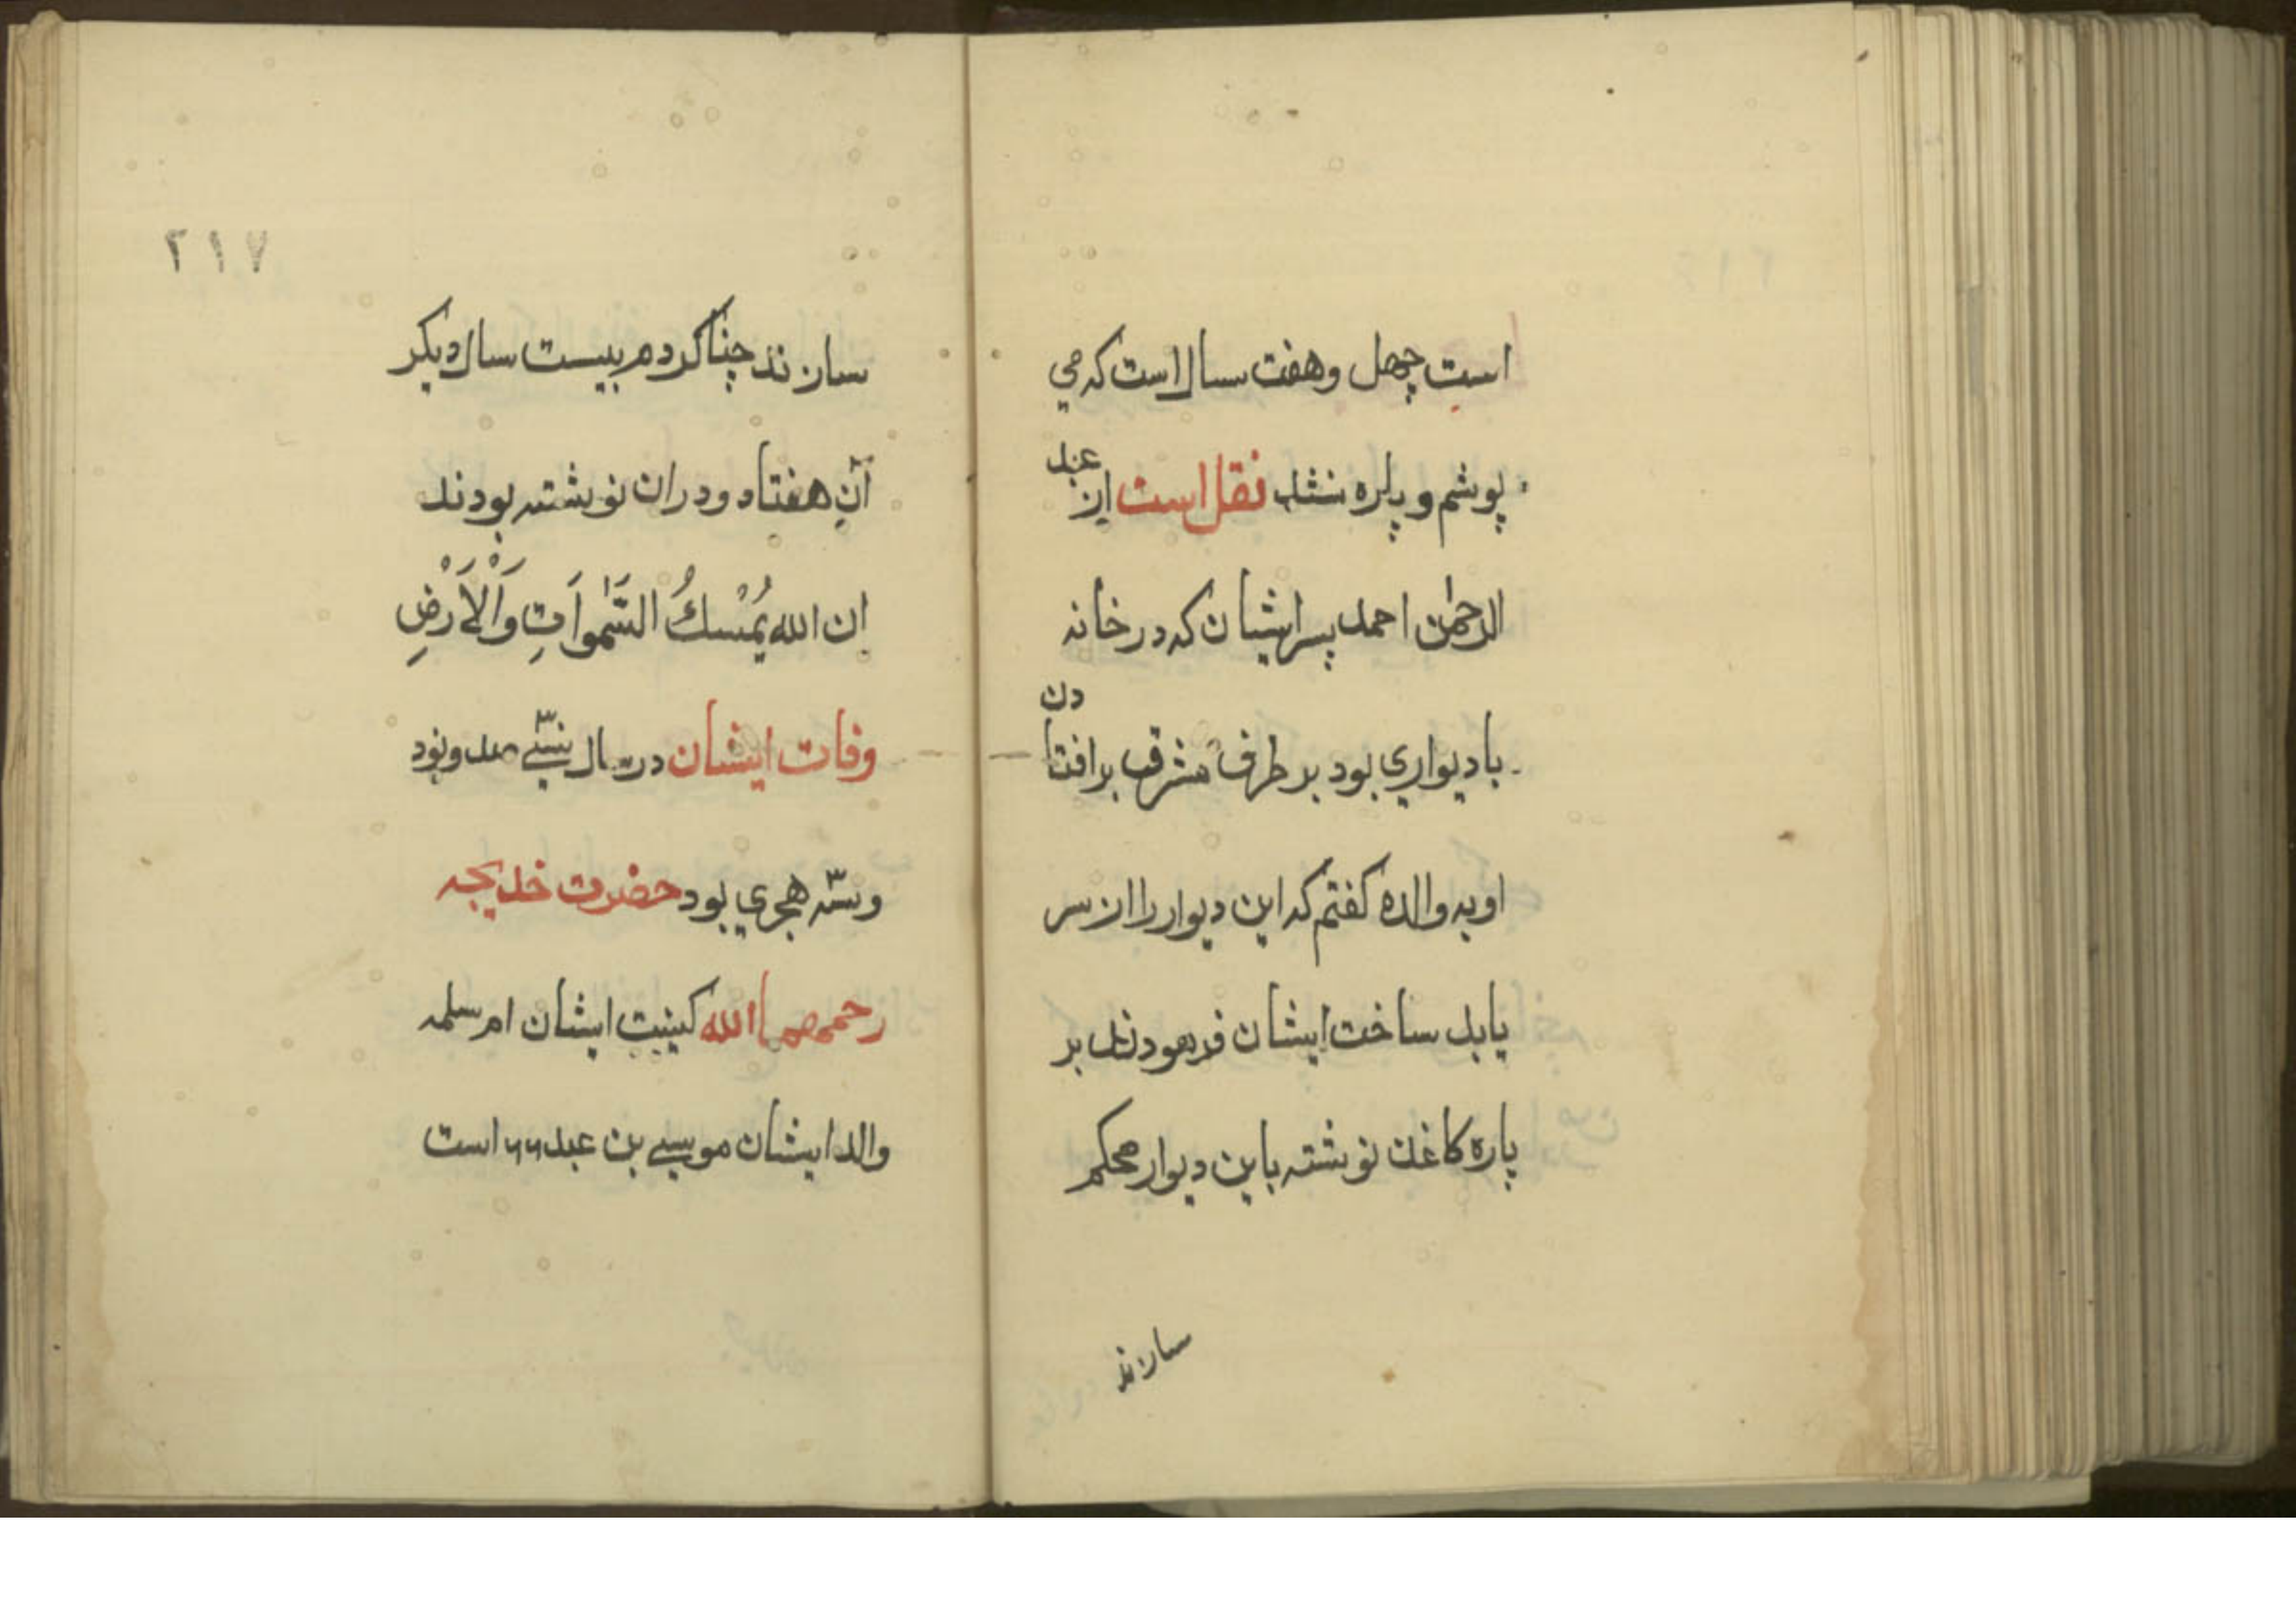 است چهل وهفت سال است که می
پوشم و پاره نشد نقل است از عبد
الرحمٰن احمد پسر ایشان که در خانه
با دیواری بود بر طرف مشرق بر افتادن
او به والده کفتم که این دیوار را از سر
باید ساخت ایشان فرمودند بر
پاره کاغذ نوشته باین دیوار محکم
سازند
۲۱۷
سازند چنا کردم بیست سال دیکر
آن هفتاد ودران نوشته بودند
ان الله یُمْسكُ السَّمٰواَتِ وَاْلاَرْضِ
وفات ایشان در سال سی صد ونود
وسه هجری بود حضرت خدیجه
رحمهما الله کینیت ایشان ام سلمه
والد ایشان موسی بن عبد است